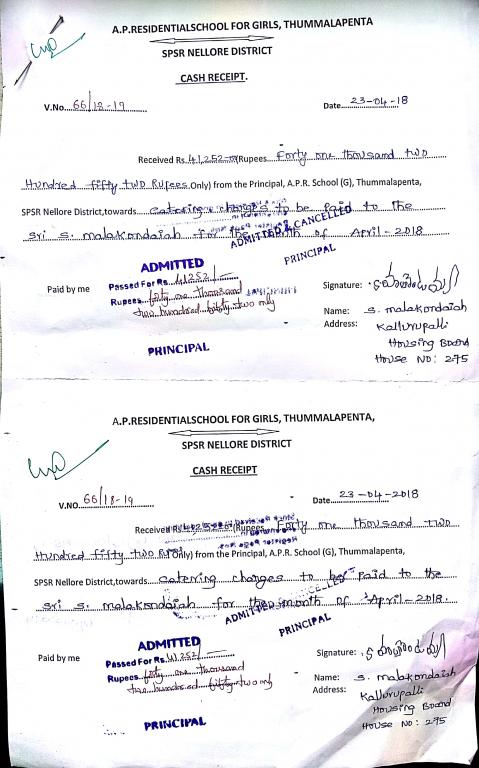 A.P.RESIDENTIALSCHOOL FOR GIRLS, THUMMALAPENTA
SPSR NELLORE DISTRICT
CASH RECEIPT.
V.No...66/18-19 Date...23-04-18
Received Rs.41,252-00(Rupees Forty one thousand two
Hundred fifty two Rupees Only) from the Principal, A.P.R. School (G), Thummalapenta,
SPSR Nellore District,towards catering charges to be paid to the
sri s. malakondaiah for the month of April-2018
ADMITTED & CANCELLED
PRINCIPAL
ADMITTED
Paid by me Passed For Rs. 41252/-
Rupees forty one thousand
two hundred fifty two only
PRINCIPAL
Signature:
Name: s. malakondaiah
Address: Kallurupalli
Housing Board
House NO: 275
A.P.RESIDENTIALSCHOOL FOR GIRLS, THUMMALAPENTA,
SPSR NELLORE DISTRICT
CASH RECEIPT
V.NO...66/18-19 Date...23-04-2018
Received Rs. (Rupees Forty one thousand two
Hundred fifty two Only) from the Principal, A.P.R. School (G), Thummalapenta,
SPSR Nellore District,towards catering charges to be paid to the
sri s. malakondaiah for the month of April-2018.
ADMITTED & CANCELLED
PRINCIPAL
ADMITTED
Paid by me Passed For Rs. 41252/-
Rupees forty one thousand
two hundred fifty two only
PRINCIPAL
Signature:
Name: s. malakondaiah
Address: Kallurupalli
Housing Board
House NO: 275